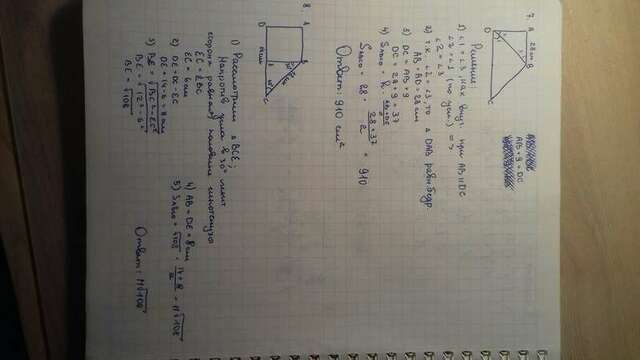 7.
A 28 см B
D
C
AB + 9 = DC
Решение:
1) ∠1 = ∠3, как внут. при AB || DC
∠2 = ∠1 (по усл.) =>
∠2 = ∠3
2) т.к. ∠2 = ∠3, то △ DAB равнбедр
AB = AD = 28 см
3) DC = AB + 9
DC = 28 + 9 = 37
4) Sabcd = 28 ·
Sabcd = 28 · 28 + 37 / 2 = 910
Ответ: 910 см²
8.
A
B
D
E
C
1) Рассмотрим △ BCE;
Напротив угла в 30° лежит
сторона равная половине гипотенузы
EC = ½ BC
EC = 6 см
2) DE = DC - EC
DE = 14 - 6 = 8 см
3) BE = √BC² - EC²
BE = √12² - 6²
BE = √108
4) AB = DE = 8 см
5) Sabcd = √108 · 14 + 8 / 2 = 11√108
Ответ: 11√108